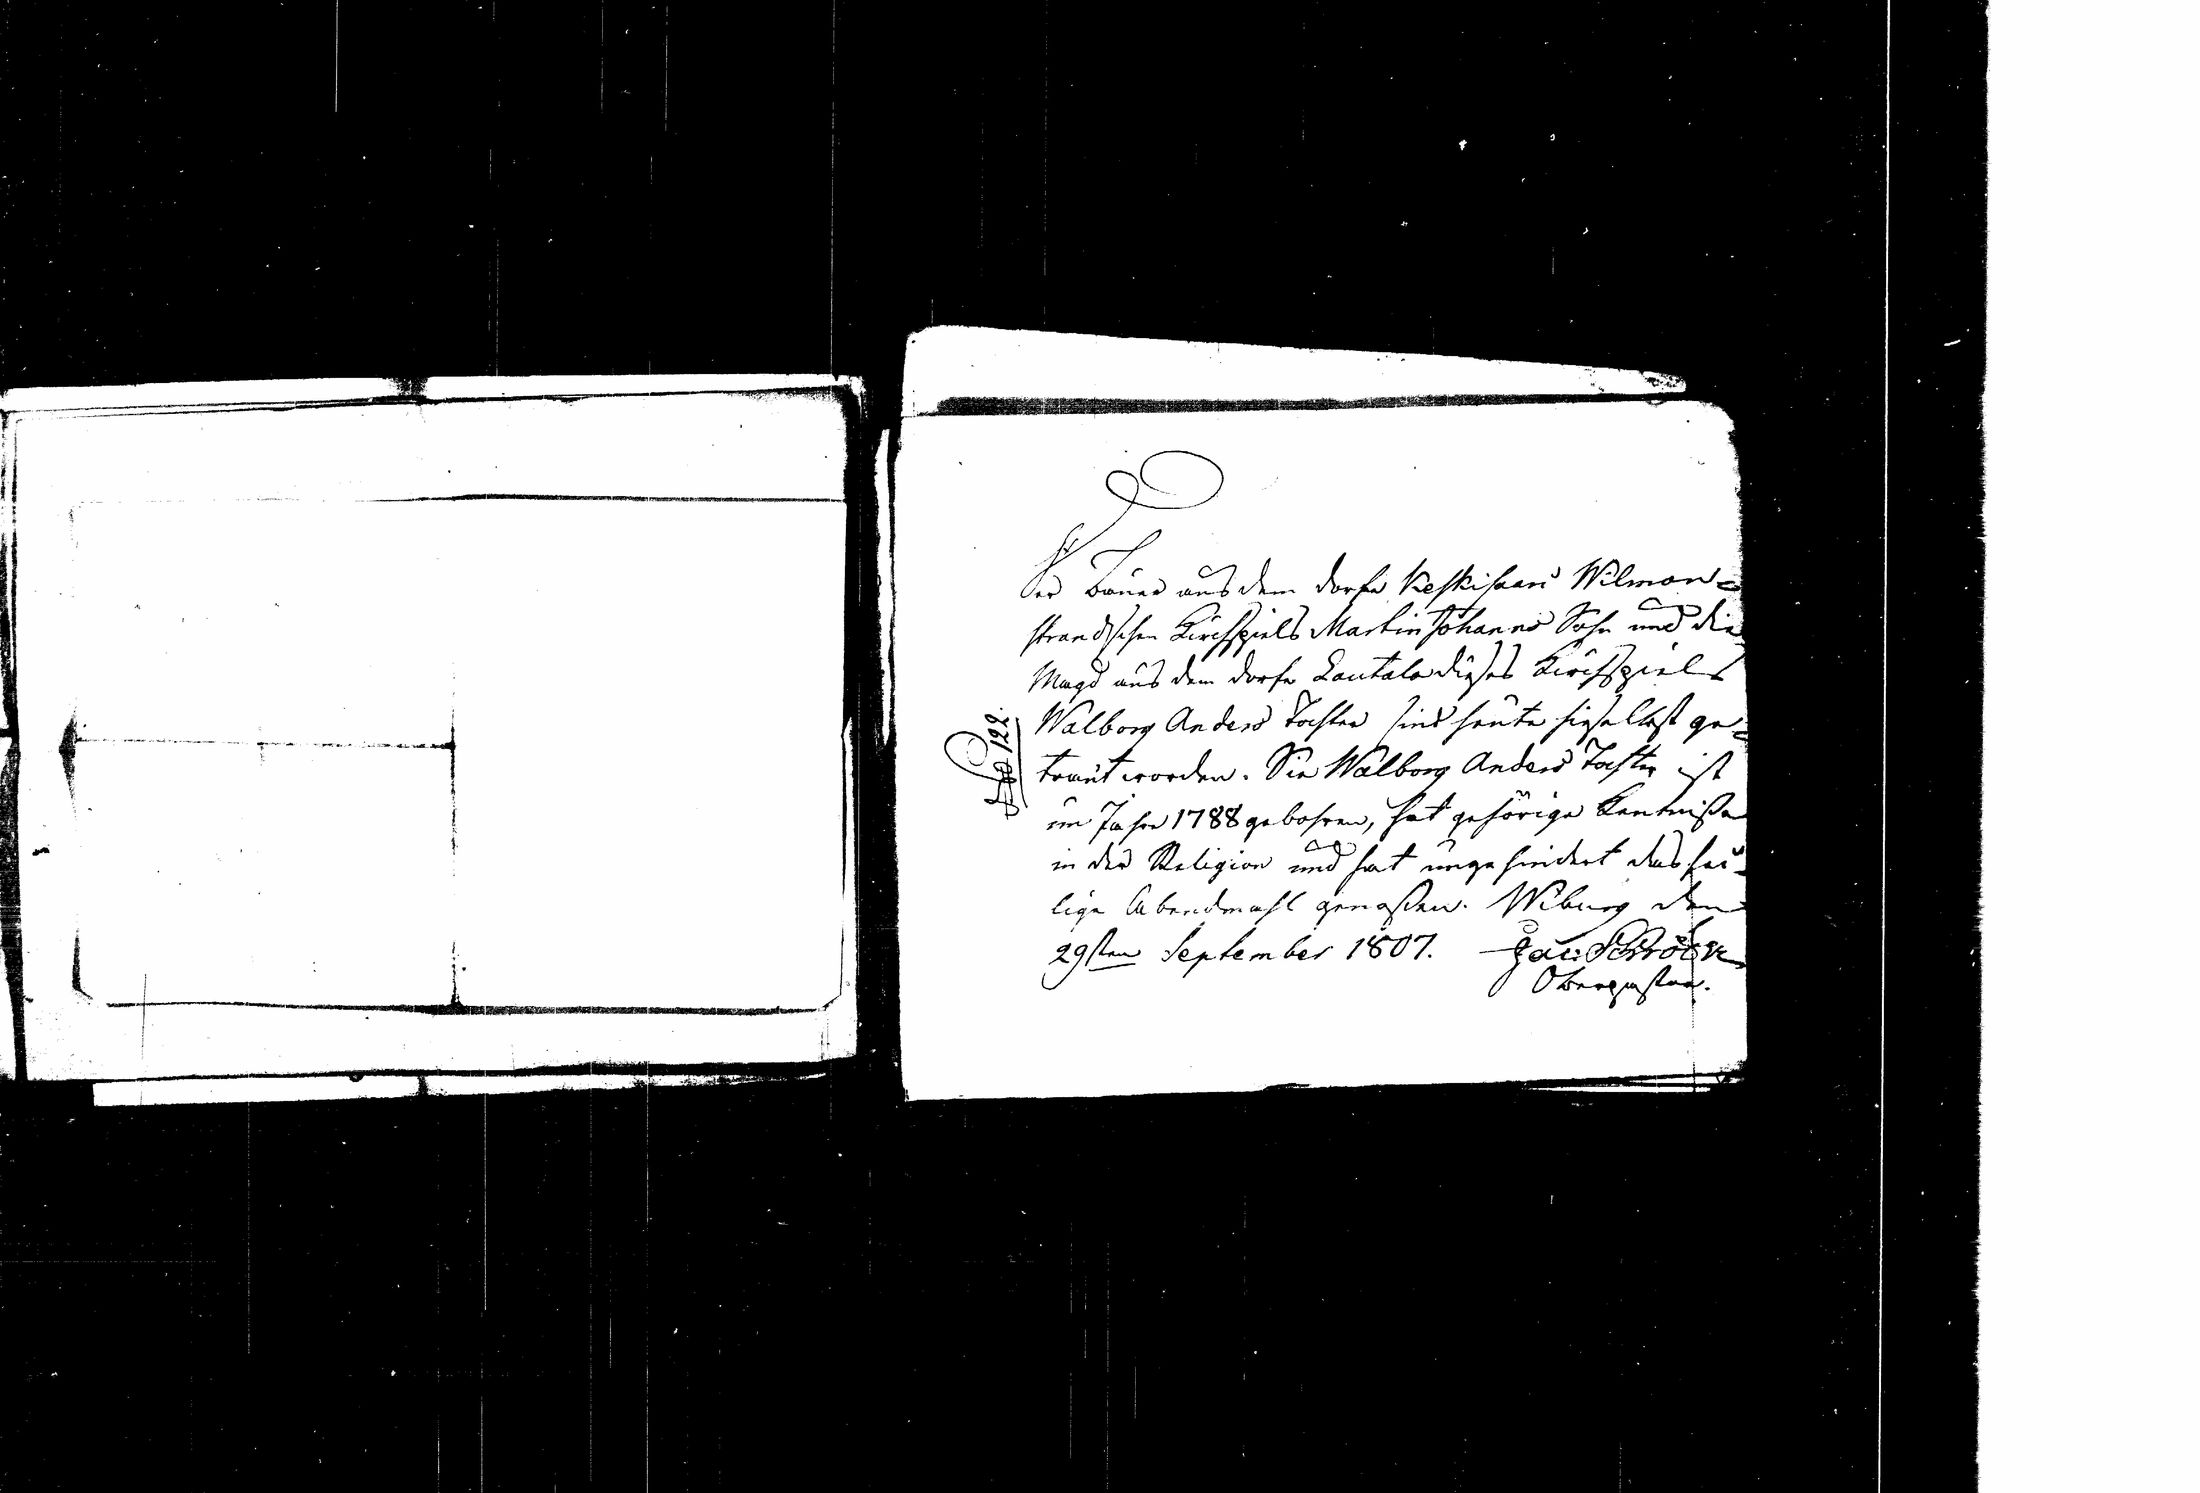 Der Bauer aus dem Dorfe Keskisaari Wilman=
strandschen Kirchspiels Martin Johanns Sohn und die
Magd aus dem Dorfe Kautala dieses Kirchspiels
Walborg Anders Tochter sind heute hieselbst ge=
traut worden. Die Walborg Anders Tochter ist
im Jahre 1788 gebohren, hat gehörige Kentniße
in der Religion und hat ungehindert das hei=
lige Abendmahl genoßen. Wiburg den
29sten September 1807.
Oberpastor.
122.